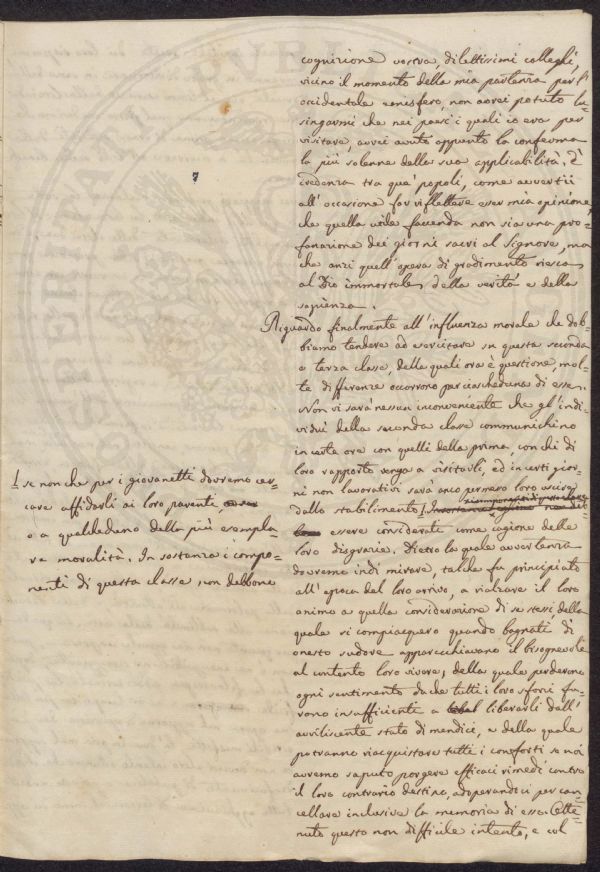 cognizione vostra, dilettissimi colleghi,
vicino il momento della mia partenza per l'
occidentale emisfero, non avrei potuto lu-
singarmi che nei paesi i quali io era per
visitare, avrei avuto appunto la conferma
la più solenne della sua applicabilità, e
credenza tra que' popoli, come avvertii
all'occasione for riflettere esser mia opinione,
che quella utile facenda non sia una pro-
fanazione dei giorni sacri al Signore, ma
che anzi quell'opera di gradimento riesca
al Dio immortale, della verità e della
sapienza.
Riguardo finalmente all'influenza morale che dob-
biamo tendere ad esercitare su questa seconda
e terza classe, della quali ora è questione, mol-
te differenze occorrono per ciascheduna di esse.
Non vi sarà nessun inconveniente che gl'indi-
vidui della seconda classe communichino
in certe ore con quelli della prima, con chi di
loro rapporto venga a visitarli, ed in certi gior-
ni non lavorativi sarà anco permesso loro uscire
dallo stabilimento
se non che per i giovanetti dovremo cer-
care affidarli ai loro parente
o a qualcheduno della più esempla-
re moralità. In sostanza i compo-
nenti di questa classe, non debbono
essere considerati come cagione delle
loro disgrazie. Dietro la quale avvertenza
dovremo indi mirare, talche fu principiato
all'epoca del loro arrivo, a rialzare il loro
animo a quella considerazione di se stessi, della
quale si compiacquero quando bagnati di
onesto sudore apparecchiavano il bisognevole
al contento loro vivere; della quale perderono
ogni sentimento da che tutti i loro sforzi fu-
rono insufficiente a liberarli dall'
avviliscente stato di mendici, e della quale
potranno riacquistare tutti i conforti se noi
avremo saputo porgere efficaci rimedi contro
il loro contrario destino, adoperandoci per can-
cellare inclusive la memoria di esso. Otte-
nuto questo non difficile intento, e col